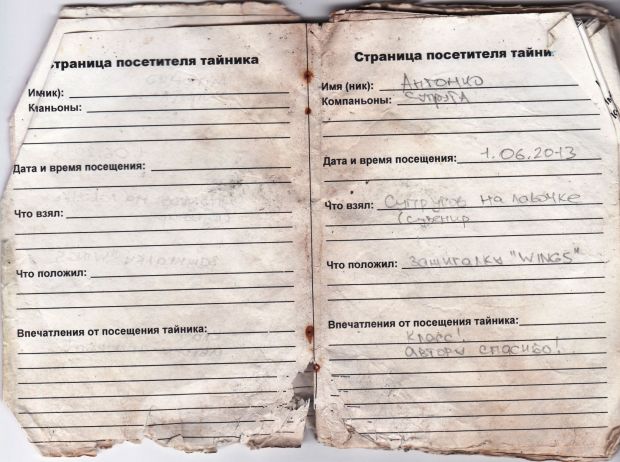 траница посетителя тайника
Имик):
Кманьоны:
Дата и время посещения:
Что взял:
Что положил:
Впечатления от посещения тайника:
Страница посетителя тайни
Имя (ник): Антонко
Компаньоны: супруга
Дата и время посещения: 1.06.2013
Что взял: Супругов на лавочке
(сувенир
Что положил: Зажигалку "WINGS"
Впечатления от посещения тайника:
Класс!
Автору спасибо!